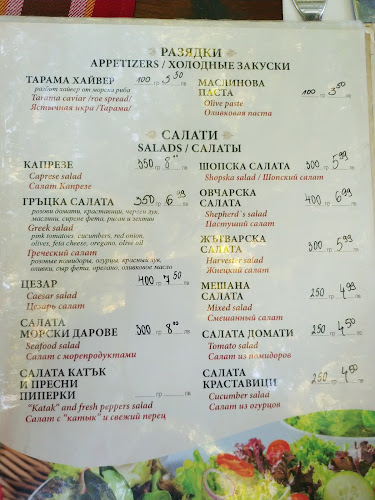 РАЗЯДКИ
APPETIZERS / ХОЛОДНЫЕ ЗАКУСКИ
ТАРАМА ХАЙВЕР 100 гр 3,50 лв
разбит хайвер от морска риба
Tarama caviar /roe spread/
Ястычная икра /Тарама/
МАСЛИНОВА
ПАСТА 100 гр 3,50 лв
Olive paste
Оливковая паста
САЛАТИ
SALADS / САЛАТЫ
КАПРЕЗЕ 350 гр 8,00 лв
Caprese salad
Салат Капрезе
ГРЪЦКА САЛАТА 350 гр 6,99 лв
розови домати, краставици, червен лук,
маслини, сирене фета, риган и зехтин
Greek salad
pink tomatoes, cucumbers, red onion,
olives, feta cheese, oregano, olive oil
Греческий салат
розовые помидоры, огурцы, красный лук,
оливки, сыр фета, орегано, оливковое масло
ЦЕЗАР 400 гр 7,50 лв
Caesar salad
Цезарь салат
САЛАТА
МОРСКИ ДАРОВЕ 300 гр 8,00 лв
Seafood salad
Салат с морепродуктами
САЛАТА КАТЪК
И ПРЕСНИ
ПИПЕРКИ гр лв
"Katak" and fresh peppers salad
Салат с "катык" и свежий перец
ШОПСКА САЛАТА 300 гр 5,99 лв
Shopska salad / Шопский салат
ОВЧАРСКА
САЛАТА 400 гр 6,99 лв
Shepherd`s salad
Пастуший салат
ЖЪТВАРСКА
САЛАТА 300 гр 5,99 лв
Harvester salad
Жнецкий салат
МЕШАНА
САЛАТА 250 гр 4,99 лв
Mixed salad
Смешанный салат
САЛАТА ДОМАТИ 250 гр 4,50 лв
Tomato salad
Салат из помидоров
САЛАТА
КРАСТАВИЦИ 250 гр 4,50 лв
Cucumber salad
Салат из огурцов